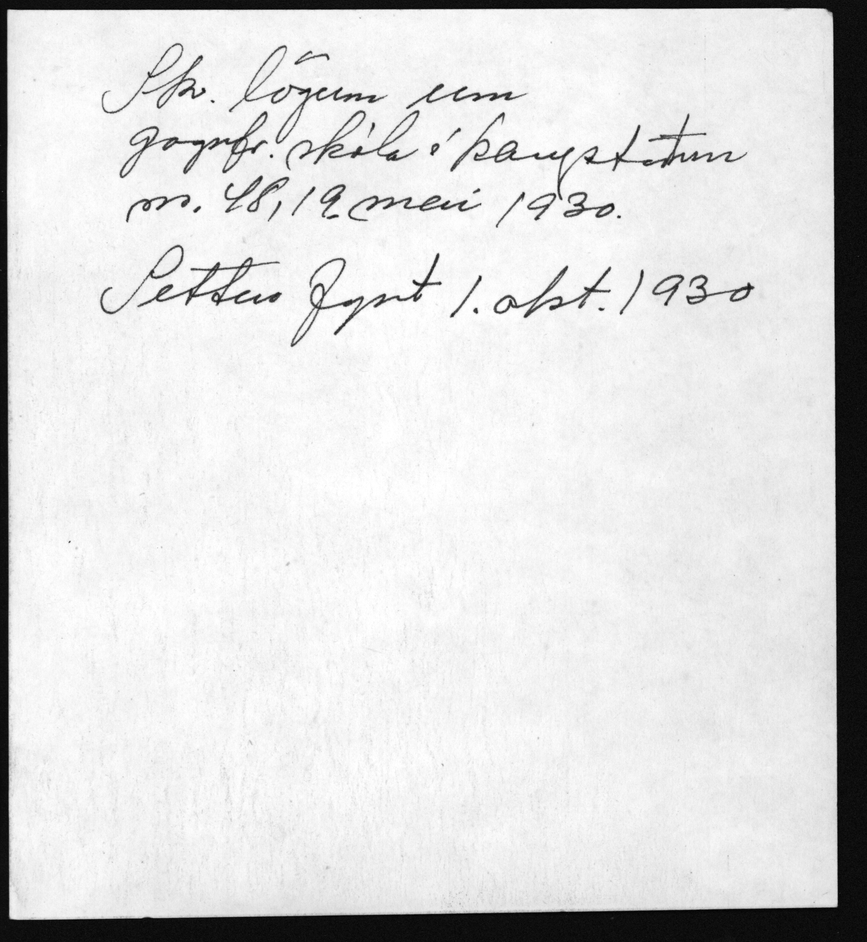 Sk. lögum um
gagnfr. skóla í kaupstöðum
nr. 48, 19. maí 1930.
Settur fyrst 1. okt. 1930